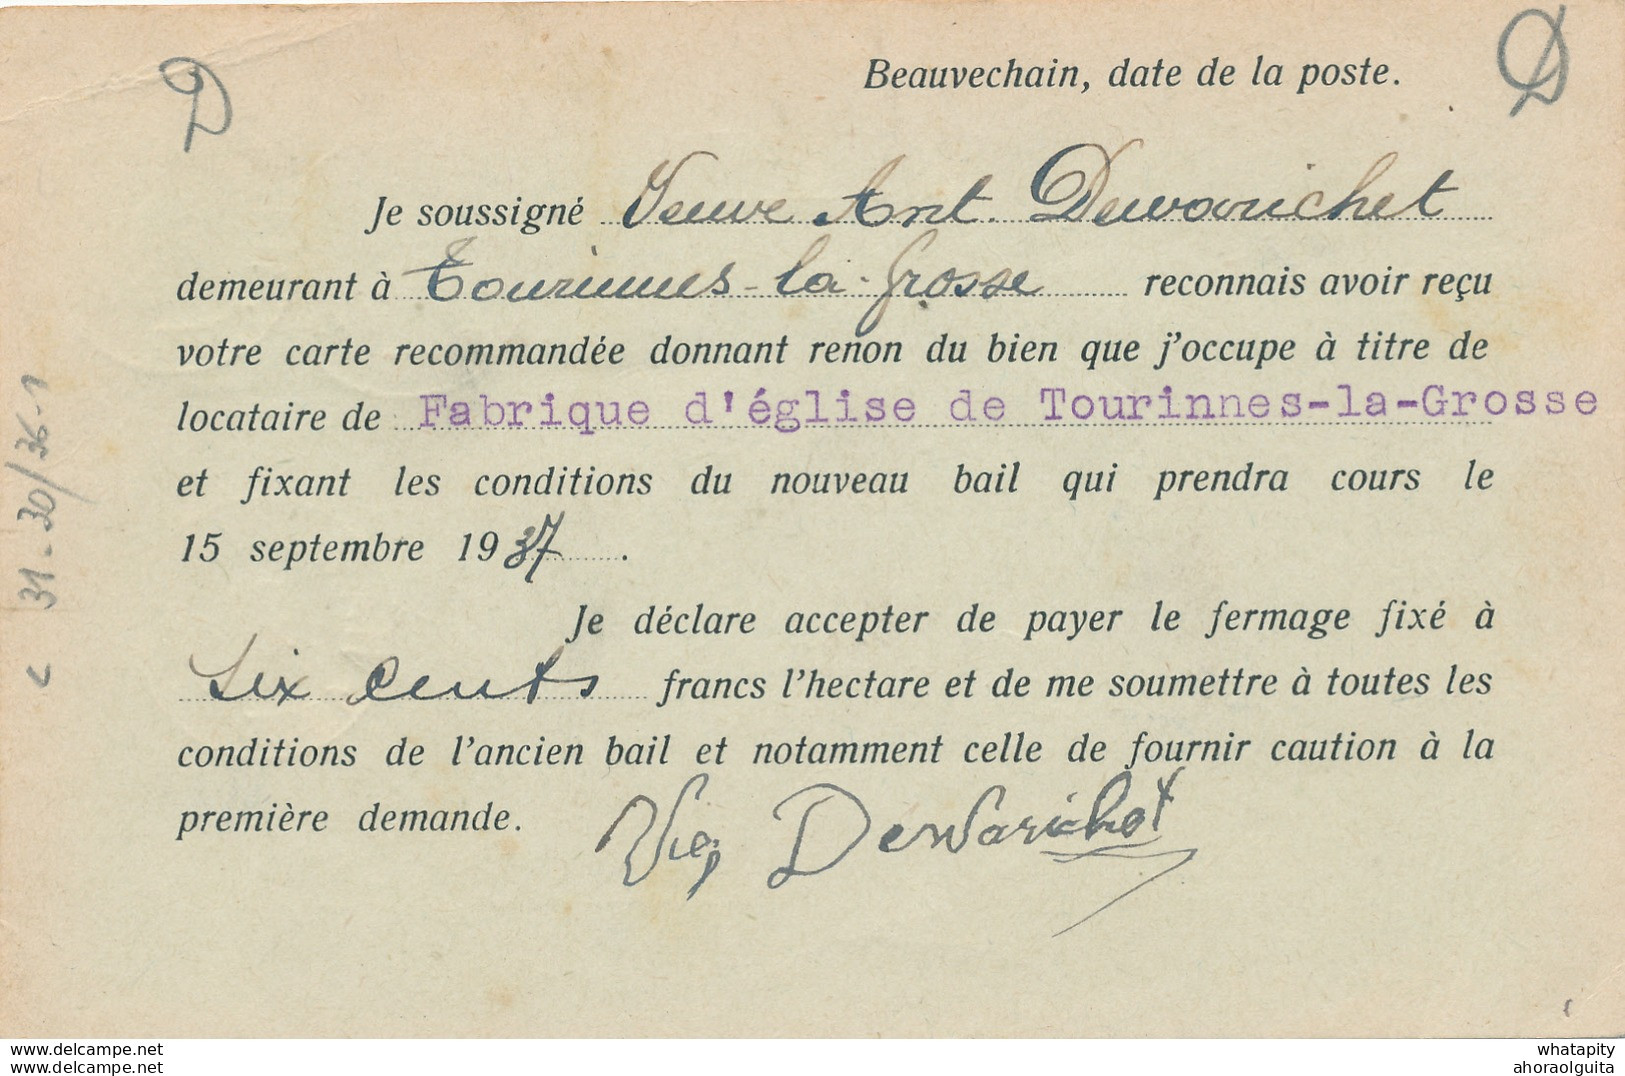 D
D
Beauvechain, date de la poste.
Je soussigné Veuve Ant. Dewarichet
demeurant à Tourinnes-la-Grosse reconnais avoir reçu
votre carte recommandée donnant renon du bien que j'occupe à titre de
locataire de Fabrique d'église de Tourinnes-la-Grosse
et fixant les conditions du nouveau bail qui prendra cours le
15 septembre 1937.
Je déclare accepter de payer le fermage fixé à
Six cents francs l'hectare et de me soumettre à toutes les
conditions de l'ancien bail et notamment celle de fournir caution à la
première demande.
Dewarichet
31-30/36-1
whatapity
ahoraolguita